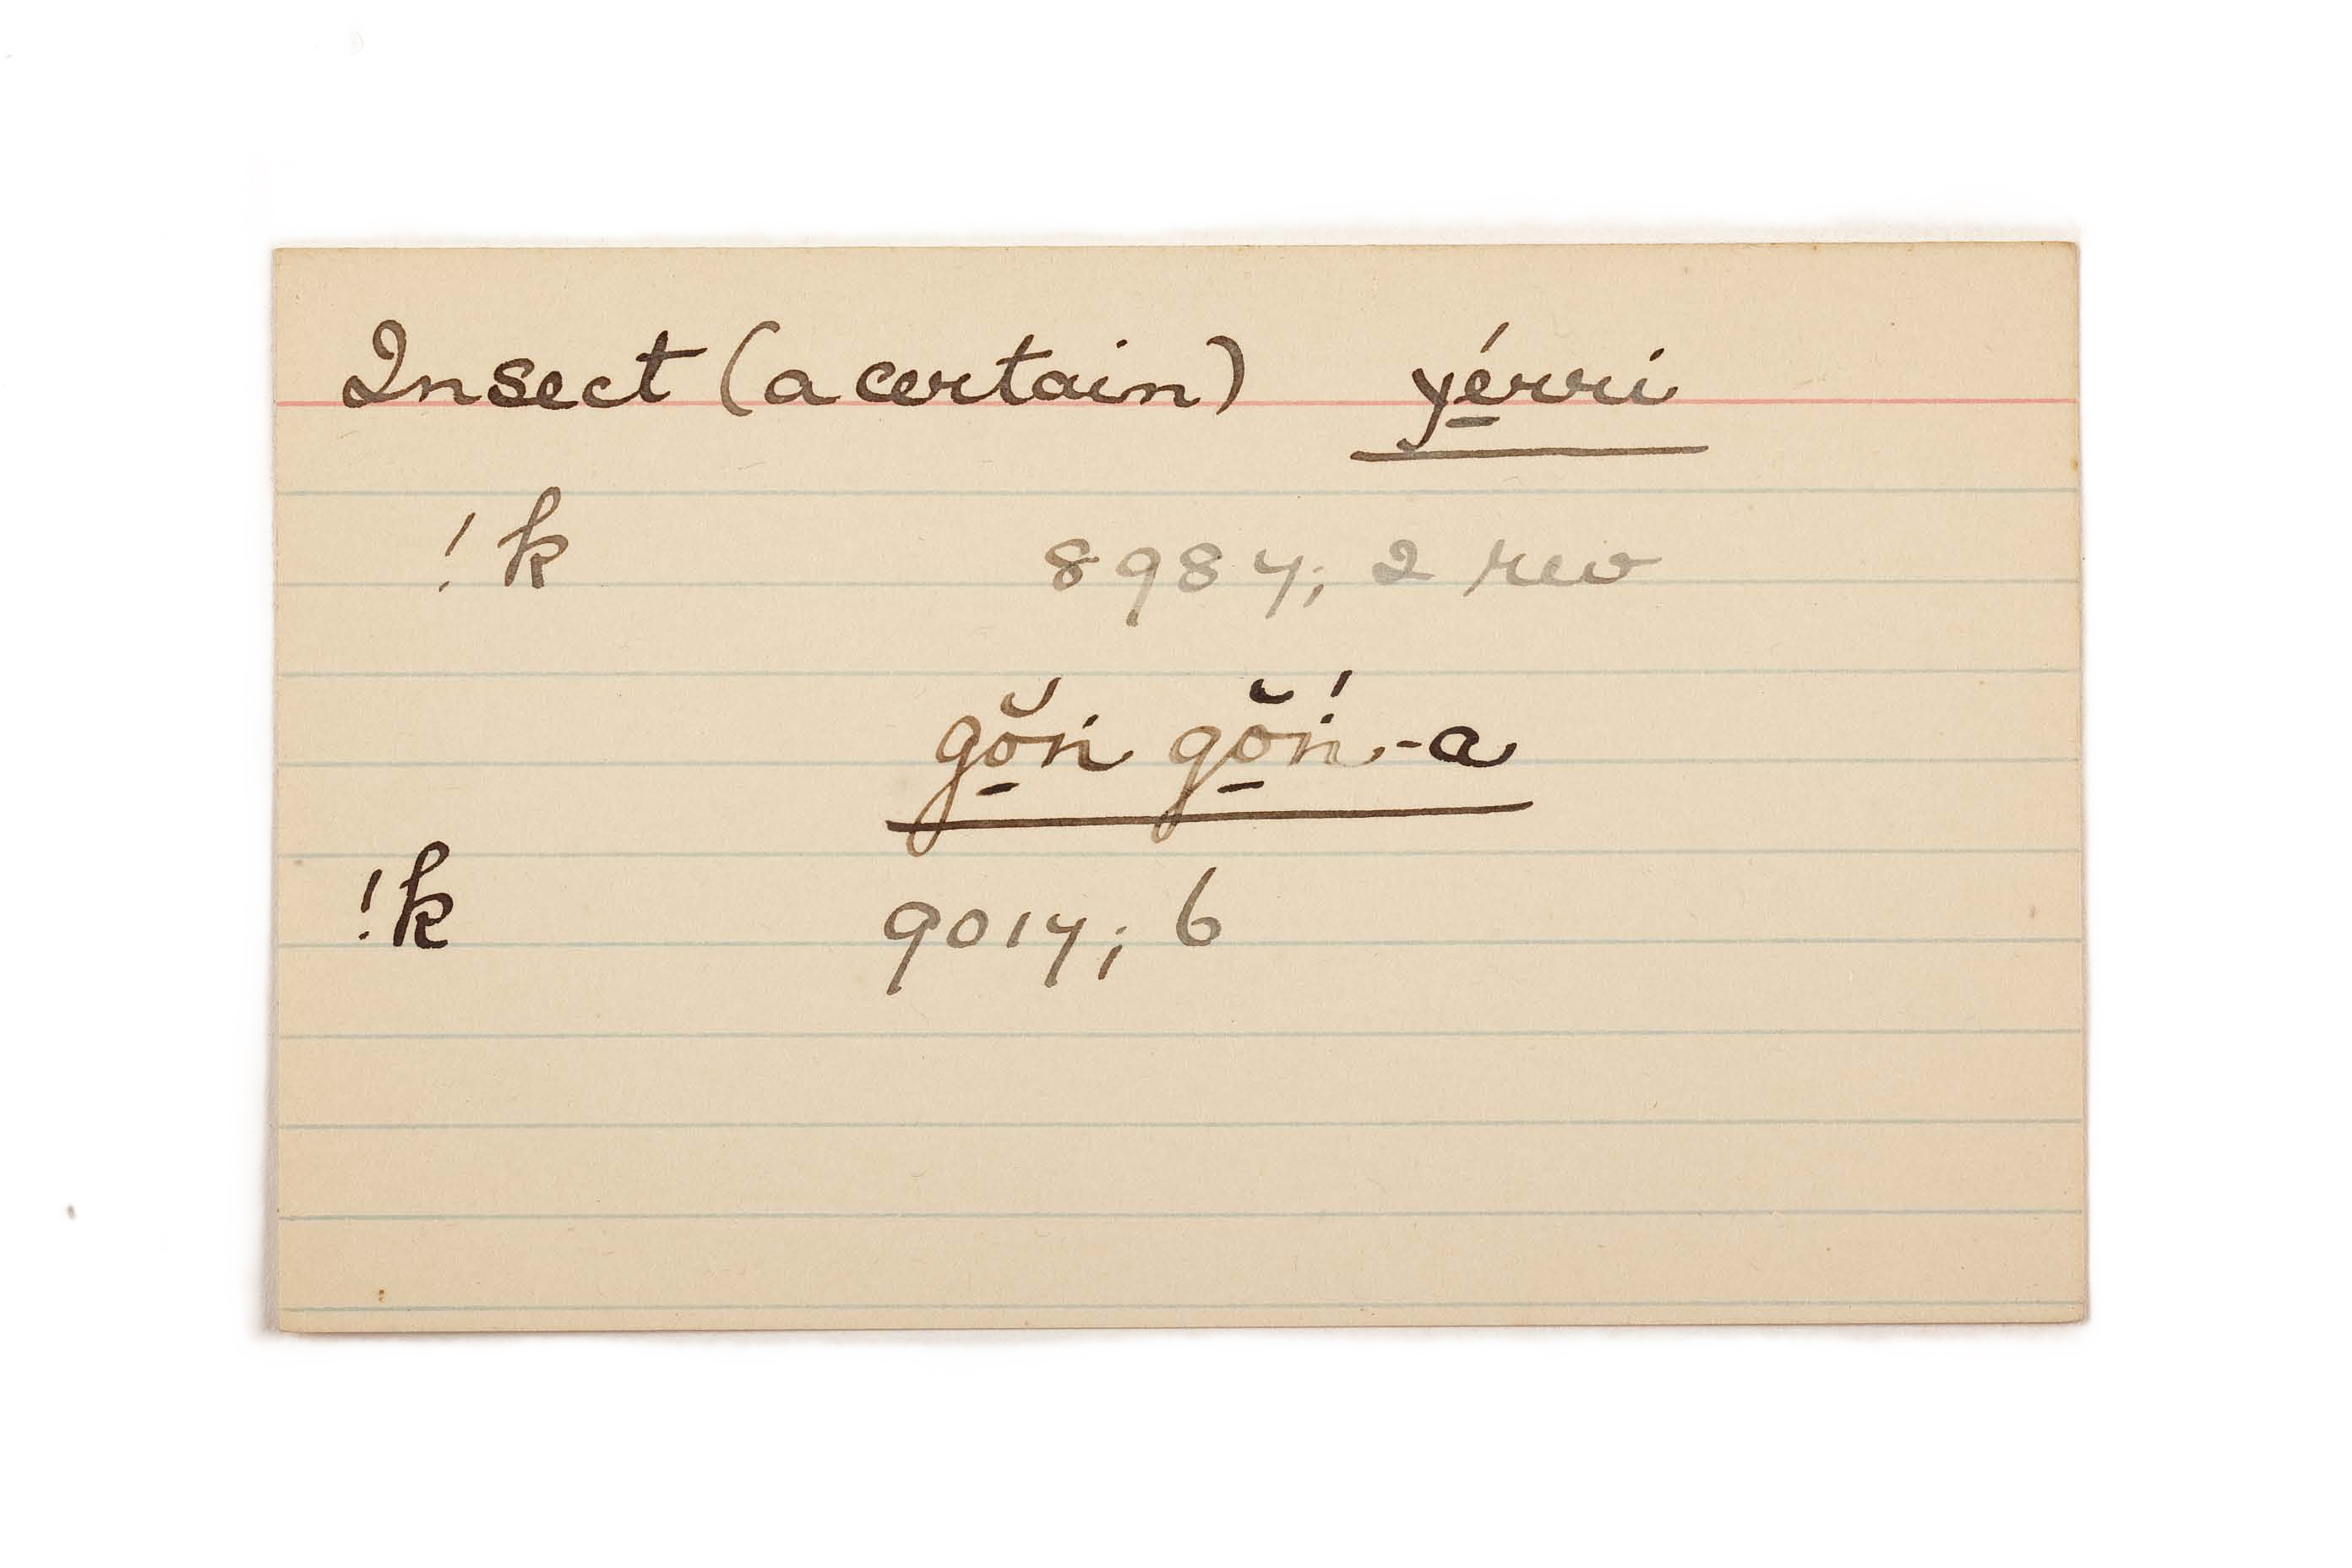 Insect (a certain) yé̱rri
!k 8984; 2 rev
gŏ̱ṅ gŏ̱ṅ́-a
!k 9014; 6